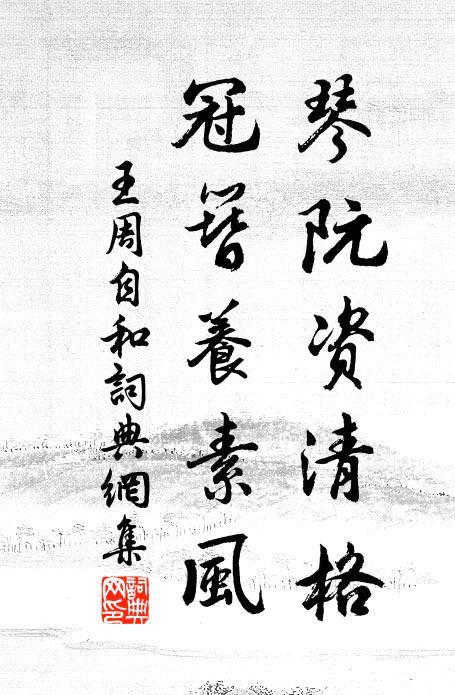 琴阮资清格
冠簪養素風
王周自和詞典網集
詞典网印